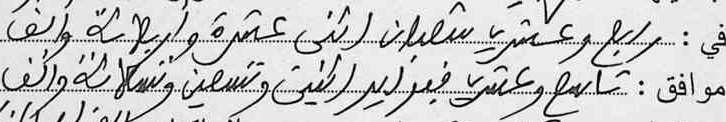 في : رابع وعشرين شعبان اثنى عشرة وأربعمائة وألف
موافق : تاسع وعشرين فبراير اثنين وتسعين وتسعمائة وألف